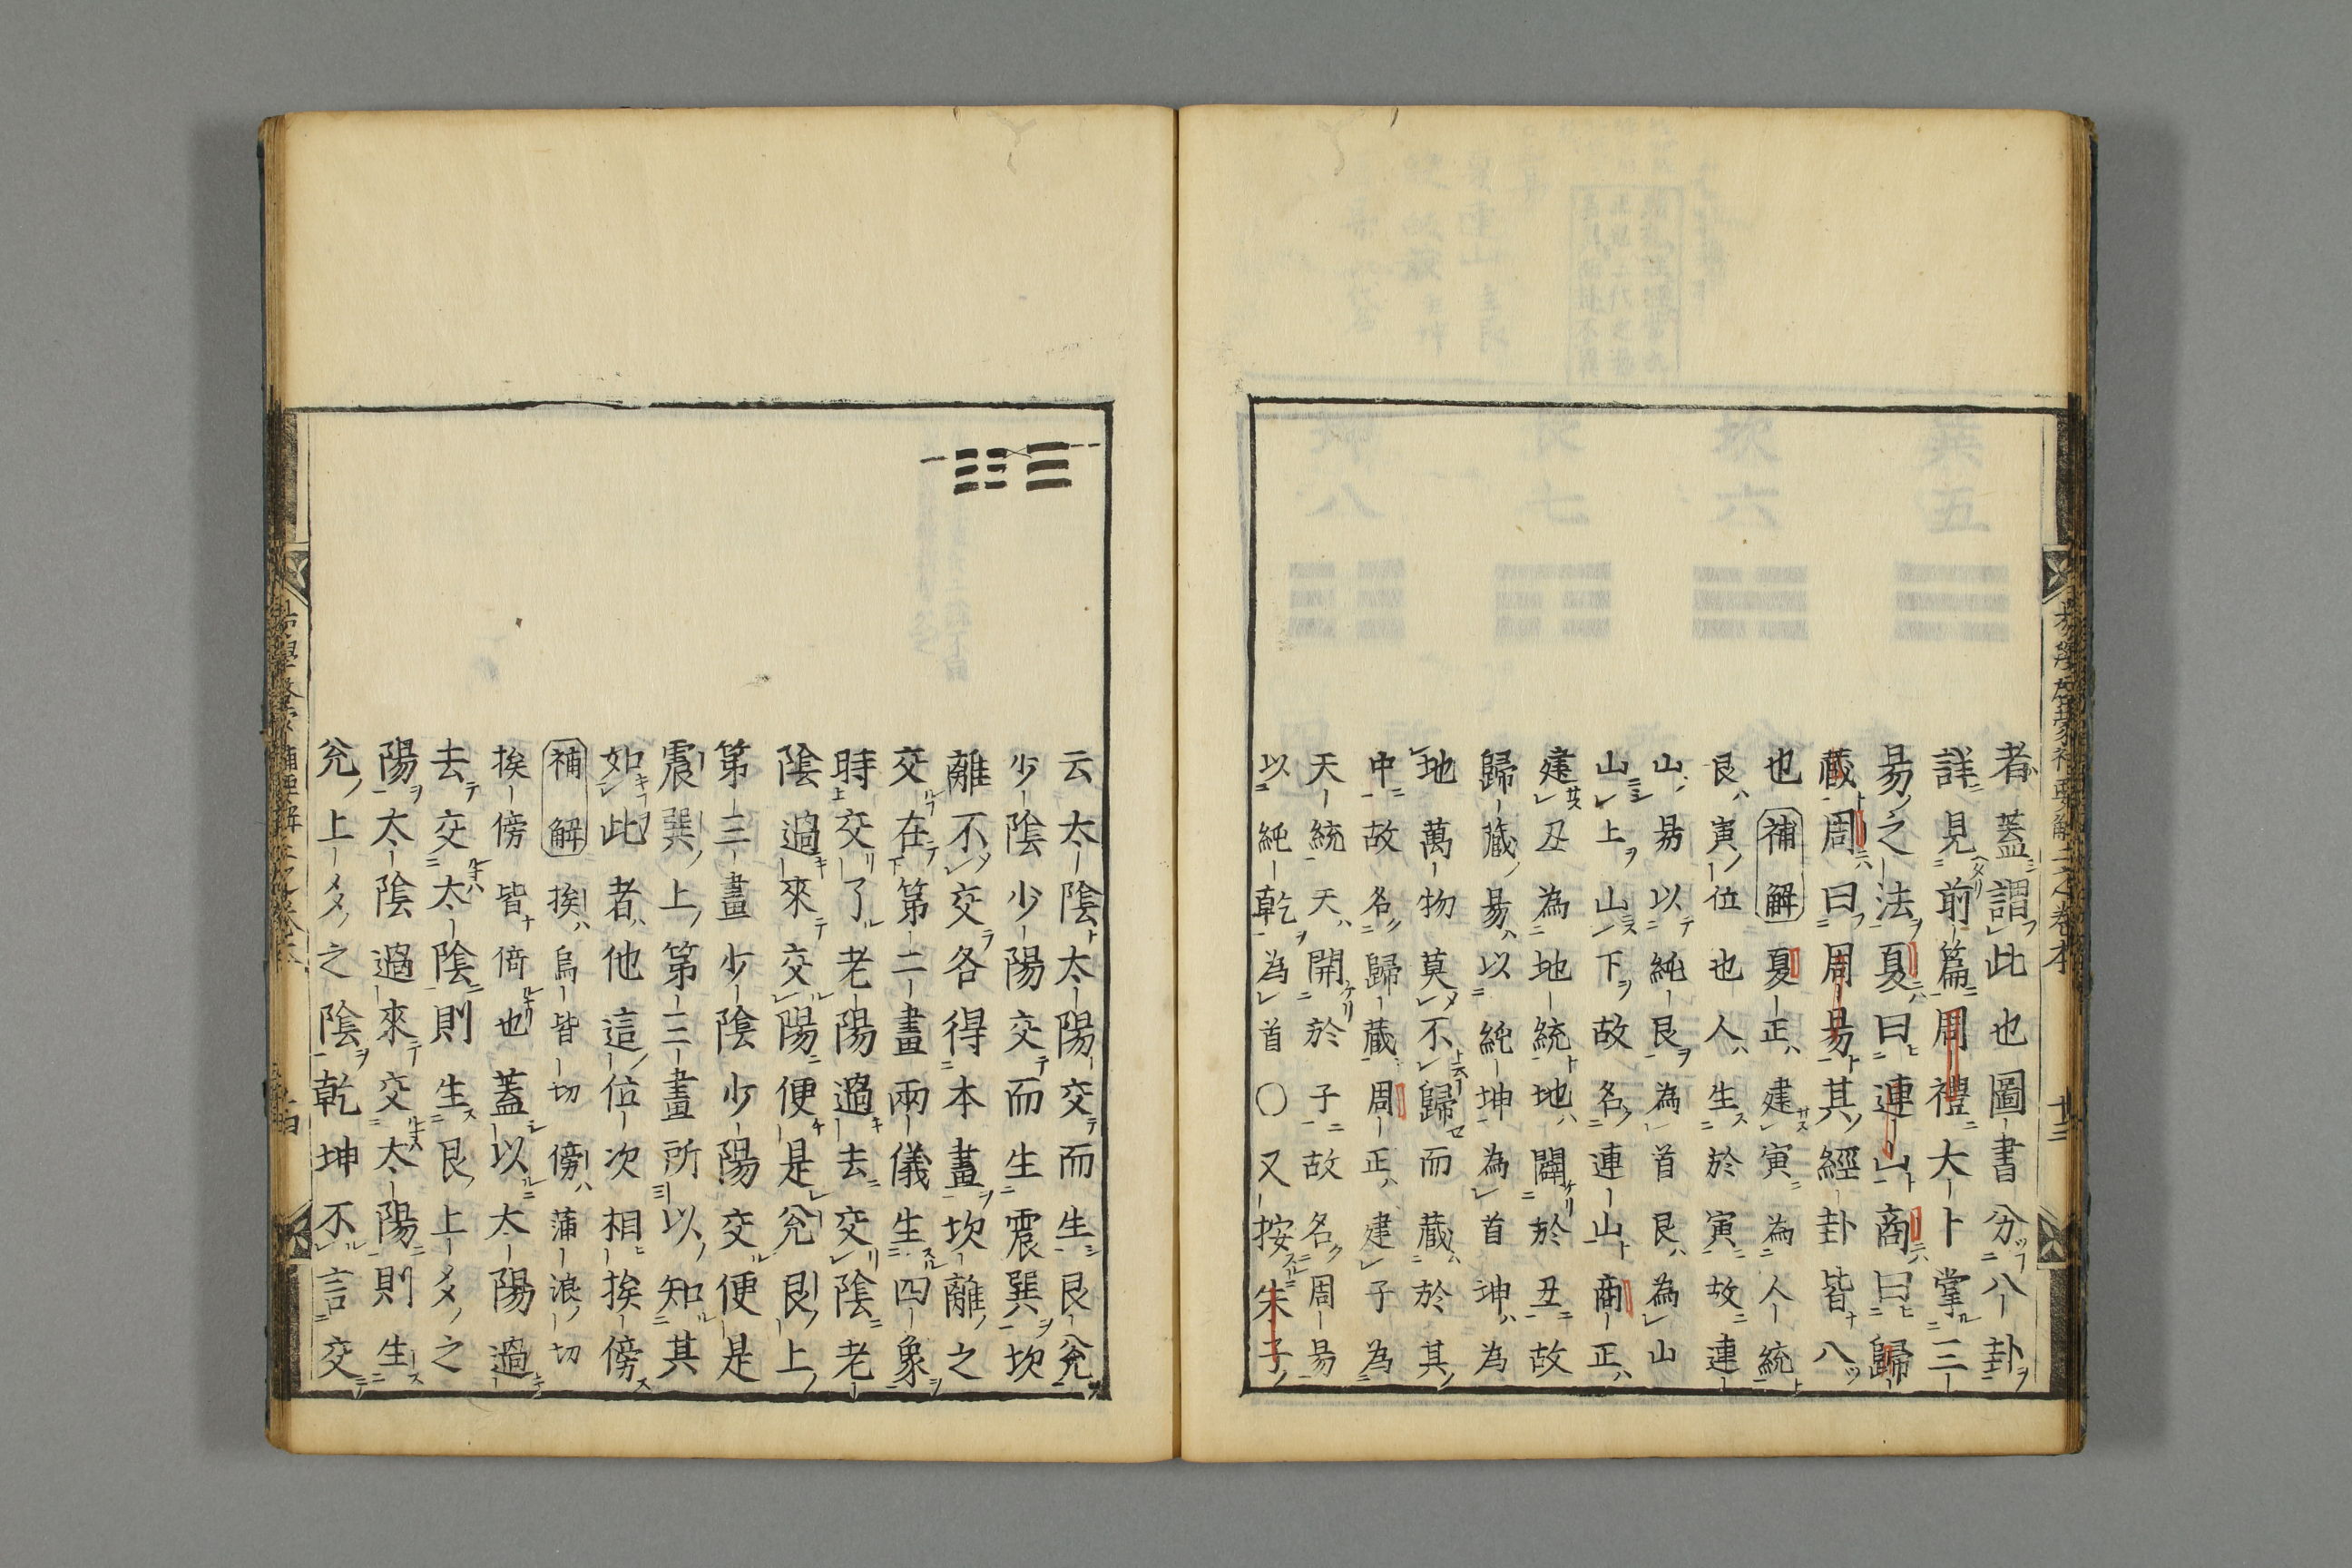 者蓋謂此也圖書分八卦
詳見前篇周禮大卜掌三
易之法夏曰連山商曰歸
藏周曰周易其經卦皆八
也補解夏正建寅為人統
艮寅位也人生於寅故連
山易以純艮為首艮為山
山上山下故名連山商正
建丑為地統地闢於丑故
歸藏易以純坤為首坤為
地萬物莫不歸而藏於其
中故名歸藏周正建子為
天統天開於子故名周易
以純乾為首〇又按朱子
云太陰太陽交而生艮兊
少陰少陽交而生震巽坎
離不交各得本畫坎離之
交在第二畫兩儀生四象
時交了老陽過去交陰老
陰過來交陽便是兊艮上
第三畫少陰少陽交便是
震巽上第三畫所以知其
如此者他這位次相挨傍
補解挨烏皆切傍蒲浪切
挨傍皆倚也蓋以太陽過
去交太陰則生艮上爻之
陽太陰過來交太陽則生
兊上爻之陰乾坤不言交